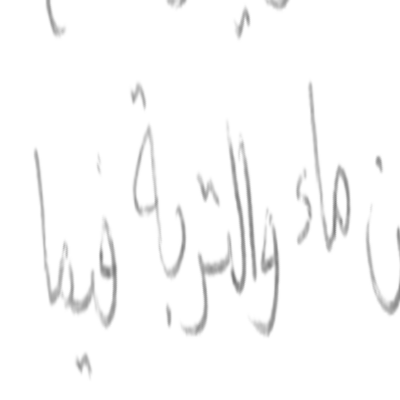 ماء والتربة فيما